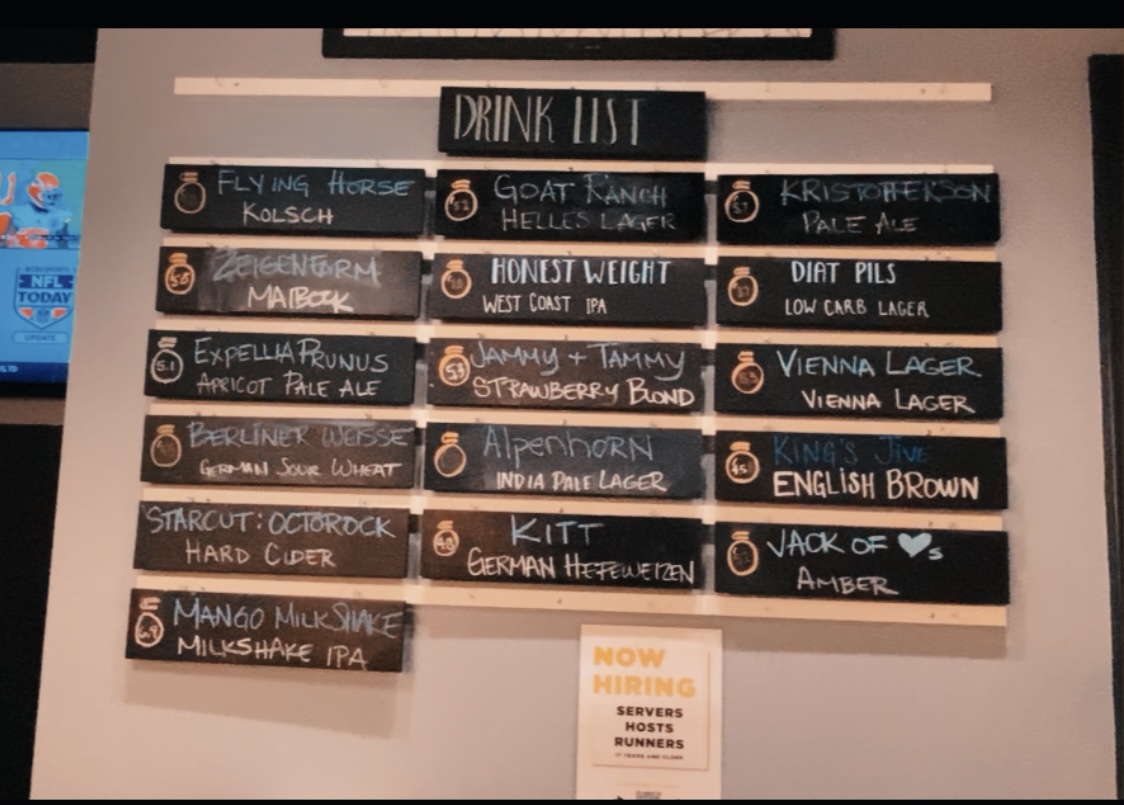 DRINK LIST
FLYING HORSE
KOLSCH
GOAT RANCH
HELLES LAGER
KRISTOFFERSON
PALE ALE
ZEIGENFARM
MAIBOCK
HONEST WEIGHT
WEST COAST IPA
DIAT PILS
LOW CARB LAGER
5.1
EXPELLIAPRUNUS
APRICOT PALE ALE
5.3
JAMMY + TAMMY
STRAWBERRY BLOND
VIENNA LAGER
VIENNA LAGER
BERLINER WEISSE
GERMAN SOUR WHEAT
AlpenhORN
INDIA PALE LAGER
KING'S JIVE
ENGLISH BROWN
STARCUT: OCTOROCK
HARD CIDER
KITT
GERMAN HEFEWEIZEN
JACK OF ♥s
AMBER
6.9
MANGO MILKSHAKE
MILKSHAKE IPA
NFL
TODAY
UPDATE
NOW
HIRING
SERVERS
HOSTS
RUNNERS
17 YEARS AND OLDER